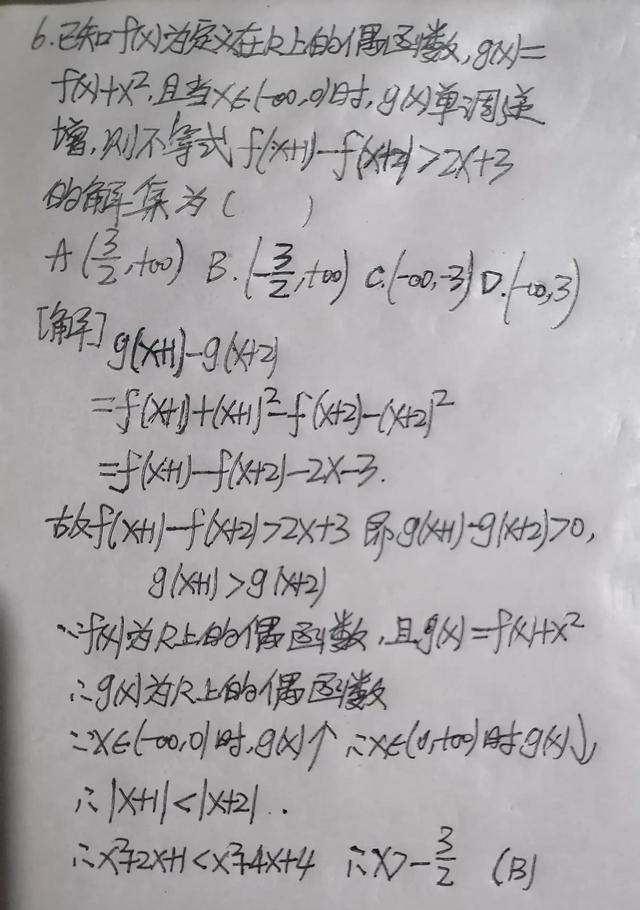 6.已知f(x)为定义在R上的偶函数,g(x)=
f(x)+x²,且当x∈(-∞,0]时,g(x)单调递
增,则不等式f(x+1)-f(x+2)>2x+3
的解集为(  )
A(3/2,+∞) B.(-3/2,+∞) C.(-∞,-3) D.(-∞,3)
[解] g(x+1)-g(x+2)
=f(x+1)+(x+1)²-f(x+2)-(x+2)²
=f(x+1)-f(x+2)-2x-3.
故f(x+1)-f(x+2)>2x+3 即g(x+1)-g(x+2)>0,
g(x+1)>g(x+2)
∵f(x)为R上的偶函数,且g(x)=f(x)+x²
∴g(x)为R上的偶函数
∵x∈(-∞,0]时,g(x)↑ ∴x∈(0,+∞)时g(x)↓
∴|x+1|<|x+2|.
∴x²+2x+1<x²+4x+4 ∴x>-3/2 (B)